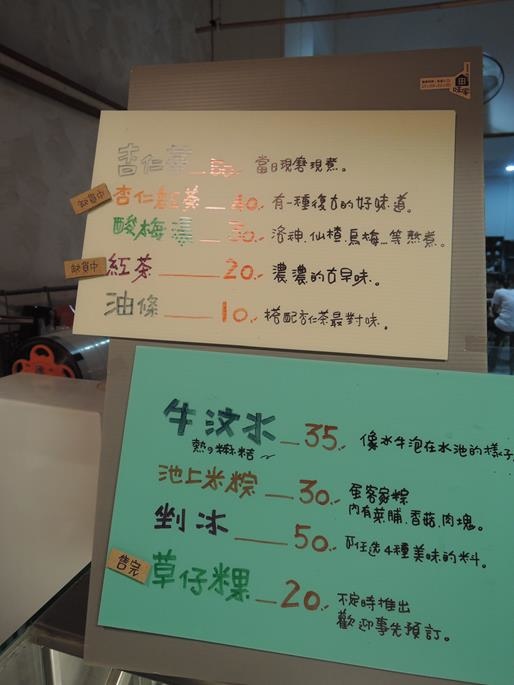 杏仁茶 當日現磨現煮。
缺貨中 杏仁紅茶 40. 有一種復古的好味道。
酸梅湯 30. 洛神.仙楂.烏梅...等熬煮。
缺貨中 紅茶 20. 濃濃的古早味。
油條 10. 搭配杏仁茶最對味。
牛汶水 35. 像水牛泡在水池的樣子
熱の麻糬
池上米粽 30. 蛋客家粽
內有菜脯.香菇.肉塊。
剉冰 50. 可任选4種美味的料。
售完 草仔粿 20. 不定時推出
歡迎事先預訂。